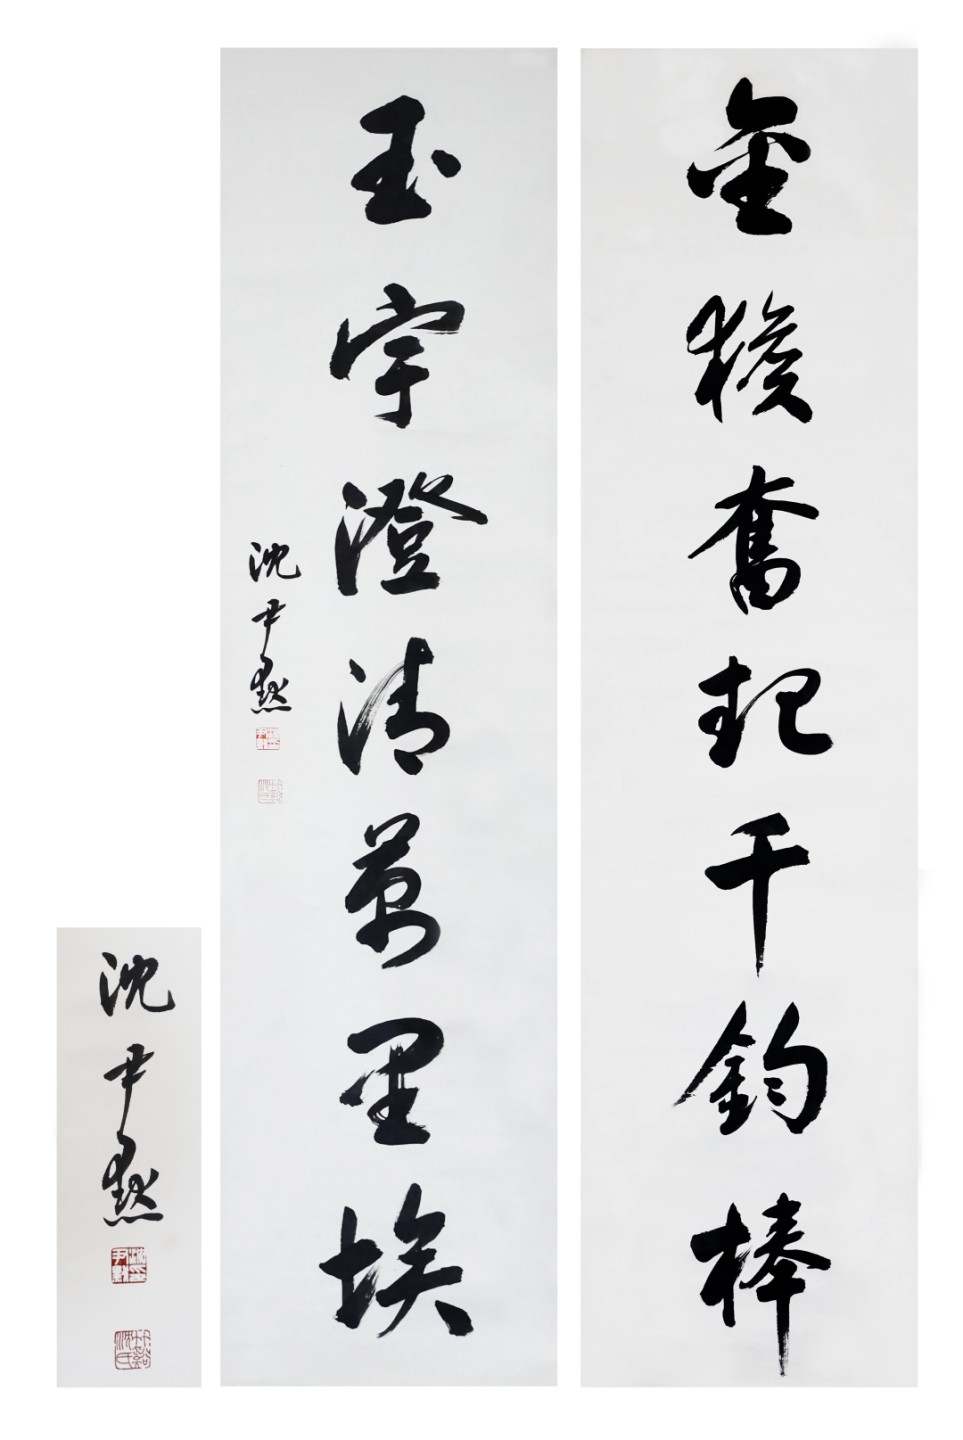 金猴奮起千鈞棒
玉宇澄清萬里埃
沈尹默
沈尹默